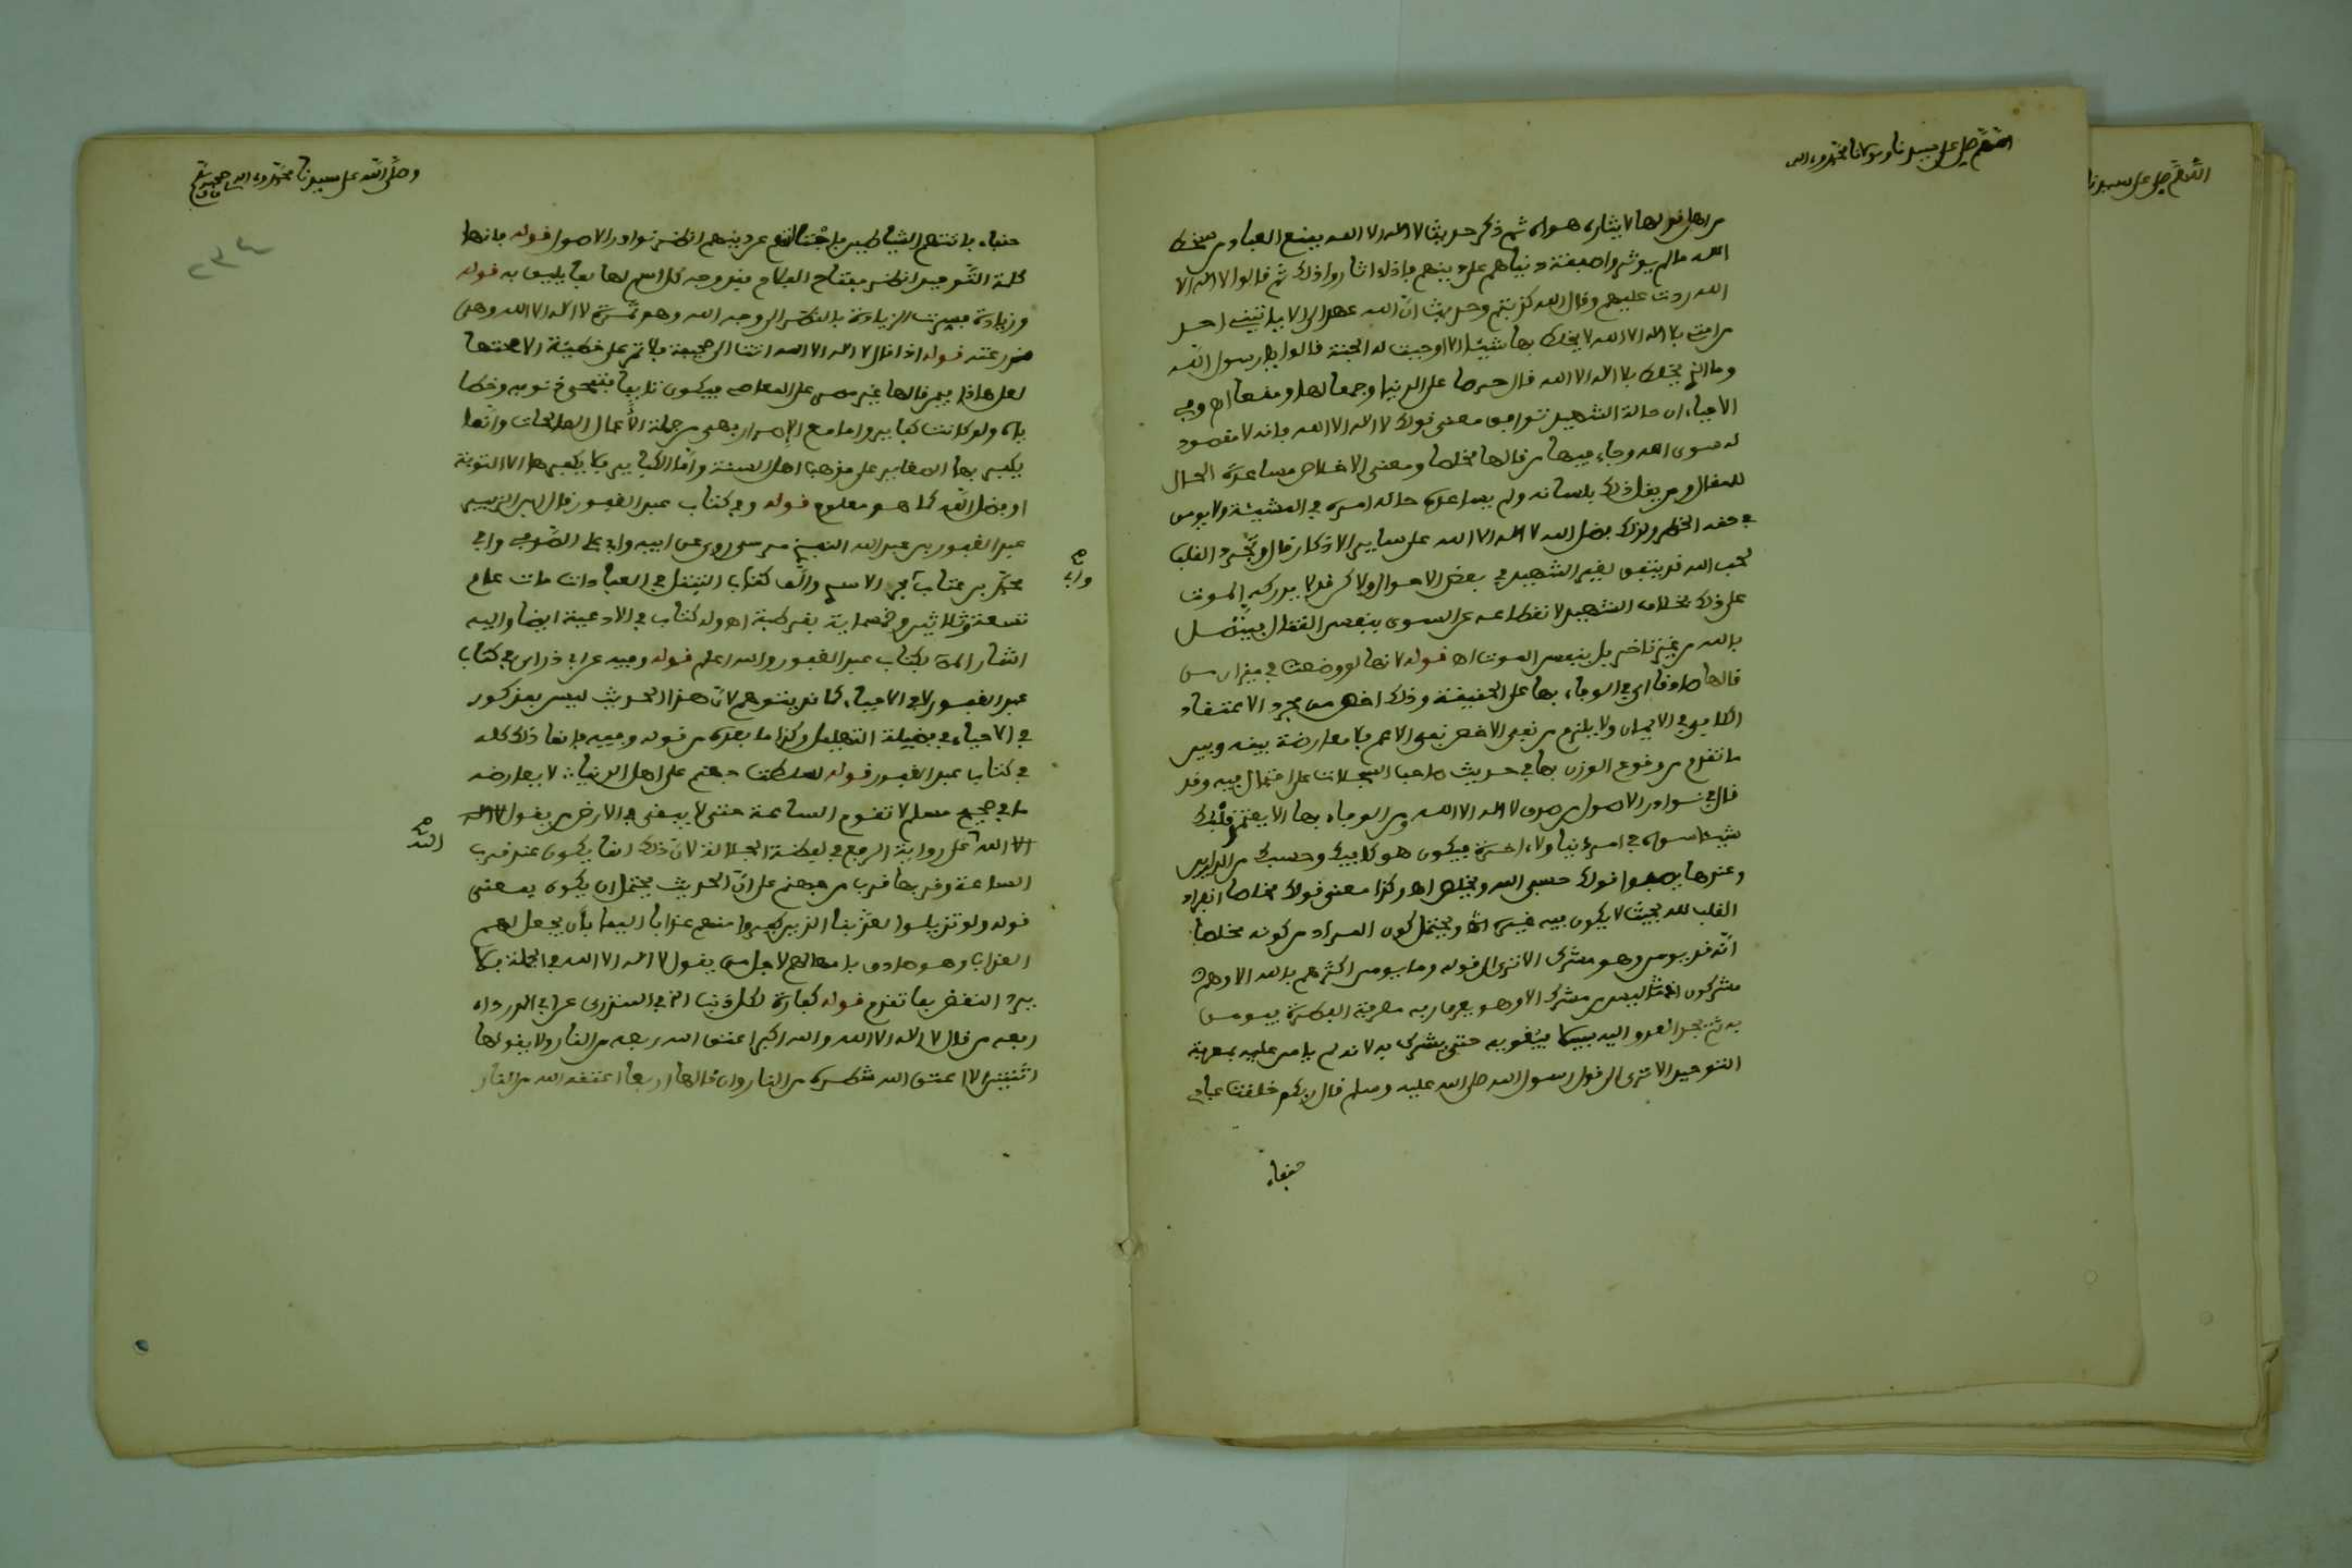 اللهم صل على سيدنا ومولانا محمد وءاله
من اهل قولها لايثاره هواه ثم ذكر حديث لا اله الا الله يمنع العباد من سخط
الله ما لم يوثروا صفقة دنياهم على دينهم فاذا اثاروا ذلك ثم قالوا لا اله الا
الله ردت عليهم وقال الله كذبتم وحديث ان الله عهد الي الا ياتيني احد
من امتي بلا اله الا الله لا يخلط بها شيئا الا وجبت له الجنة قالوا يا رسول الله
وما الذي يخلط بلا اله الا الله قال حرصا على الدنيا وجمعا لها ومنعا اه وفي
الاحياء ان حالة الشهيد توافق معنى قولك لا اله الا الله فانه لا مقصود
له سوى الله وجاء فيها من قالها مخلصا ومعنى الاخلاص مساعدة الحال
للمقال ومن يقل ذلك بلسانه ولم يساعده حاله امره في المشيئة ولا يومن
في حقه الخطر ولذلك فضل الله لا اله الا الله على ساير الاذكار قال وتجرد القلب
لحب الله قد يتفق لغير الشهيد في بعض الاحوال ولاكن قد لا يدركه الموت
على ذلك بخلاف الشهيد لانقطاعه عن السوى بنفس القتال
بالله من غير تاخير بل بنفس الموت اه قوله لانها لو وضعت في ميزان من
قالها صادقا اي في الوفاء بها على الحقيقة وذلك اخص من مجرد الاعتقاد
الكافي في الايمان ولا يلزم من نفي الاخص نفي الاعم فلا معارضة بينه وبين
ما تقدم من وقوع الوزن بها في حديث صاحب السجلات على احتمال فيه وقد
قال في نوادر الاصول من صدق لا اله الا الله ومن الوفاء بها الا يعتمد قلبك
شيئا سواه في امر دنيا ولا اخرة فيكون هو كافيك وحسبك من الدارين
وعندها يصفوا قولك حسبي الله ويخلص اه وكذا معنى قولك مخلصا انفراد
القلب لله بحيث لا يكون فيه غيره اه ويحتمل كون المراد من كونه مخلصا
انه قد يومن وهو مشرك الا ترى الى قوله وما يومن اكثرهم بالله الا وهم
مشركون ليس من مشرك الا وهو يعرف ربه معرفة الفطرة فيومن
به ثم يجد العدو اليه سبيلا فيغويه حتى يشرك به لانه لم يا من عليه بمعرفة
التوحيد الا ترى الى قول رسول الله صلى الله عليه وسلم قال ربكم خلقت عبادي
حنفاء
وصلى الله على سيدنا محمد وءاله وصحبه
٢٣٤
حنفاء فاتتهم الشياطين فاجتالتهم عن دينهم انظر نوادر الاصول قوله فانها
كلمة التوحيد انظر مفتاح الفلاح فيه وجه كل اسم لها بما يليق به قوله
وزيادة فسرت الزيادة بالنظر الى وجه الله وهو ثمرة لا اله الا الله وهي
قوله اذا قال لا اله الا الله اتت الى صحيفته فلا تمر على خطيئة الا محتها
لعل هاذا فيمن قالها غير مصر على المعاصي فيكون تايبا فتمحى ذنوبه وخطا
ياه ولو كانت كباير واما مع الاصرار فهي من جملة الاعمال الصالحات وانما
يكفر بها الصغاير على مذهب اهل السنة واما الكباير فلا يكفرها الا التوبة
او فضل الله كما هو معلوم قوله وفي كتاب عبد الغفور قال ابن الزبير
عبد الغفور بن عبد الله النفزي مرسي روى عن ابيه وابي علي الصدفي وابي
محمد بن عتاب وابي بحر الاسدي والف كتاب التنفل في العبادات مات عام
تسعة وثلاثين وخمسماية بقرطبة اه وله كتاب في الادعية ايضا واليه
اشار المؤلف بكتاب عبد الغفور والله اعلم قوله وفيه عن ابي ذر اي في كتاب
عبد الغفور لا في الاحياء كما قد يتوهم لان هذا الحديث ليس بمذكور
في الاحياء في فضيلة التهليل وكذا ما بعده من قوله وفيه فانما ذلك كله
في كتاب عبد الغفور قوله لسلطت جهنم على اهل الدنيا لا يعارضه
ما في صحيح مسلم لا تقوم الساعة حتى لا يبقى في الارض من يقول لا اله
الا الله على رواية الرفع في لفظة الجلالة لان ذلك انما يكون عند قرب
الساعة وقربها قرب من جهنم على ان الحديث يحتمل ان يكون بمعنى
قوله ولو تزيلوا لعذبنا الذين كفروا منهم عذابا اليما بان يجعل لهم
العذاب وهو صادق بامهالهم لاجل من يقول لا اله الا الله في الجملة فلا
يرد النقض بما تقدم قوله كفارة لكل ذنب الخ في المنذري عن ابي الدرداء
رفعه من قال لا اله الا الله والله اكبر اعتق الله ربعه من النار ولا يقولها
اثنتين الا اعتق الله شطره من النار وان قالها اربعا اعتقه الله من النار
اللهم صل على سيدنا